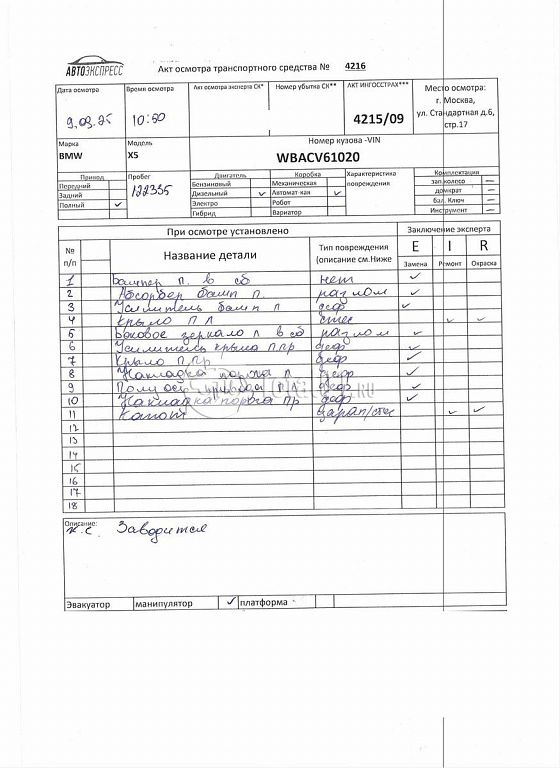 АВТОЭКСПРЕСС
Акт осмотра транспортного средства № 4216
Дата осмотра
Время осмотра
Акт осмотра эксперта СК*
Номер убытка СК**
АКТ ИНГОССТРАХ***
Место осмотра:
г. Москва,
ул. Стандартная д.6,
стр.17
10:50
4215/09
Марка
Модель
Номер кузова -VIN
BMW
X5
WBACV61020
Привод
Пробег
Двигатель
Коробка
Характеристика
повреждения
Комплектация
Передний
Бензиновый
Механическая
зап.колесо —
Задний
122335
Дизельный ✓
Автомат-кая ✓
домкрат —
Полный ✓
Электро
Робот
бал. Ключ —
Гибрид
Вариатор
Инструмент —
При осмотре установлено
Заключение эксперта
№
п/п
Название детали
Тип повреждения
(описание см.Ниже
E I R
Замена Ремонт Окраска
1 Бампер п. в сб нет ✓
2 Абсорбер бамп п. разлом ✓
3 Усилитель бамп п деф ✓
4 Крыло п л ✓ ✓
5 Боковое зеркало л в сб разлом ✓
6 Усилитель крыла п.пр деф ✓
7 Крыло п.пр деф ✓
8 Накладка порога л деф ✓
9 деф ✓
10 Накладка порога пр деф ✓
11 Капот ✓ ✓
12
13
14
15
16
17
18
Описание:
Заводится
Эвакуатор
манипулятор
✓ платформа